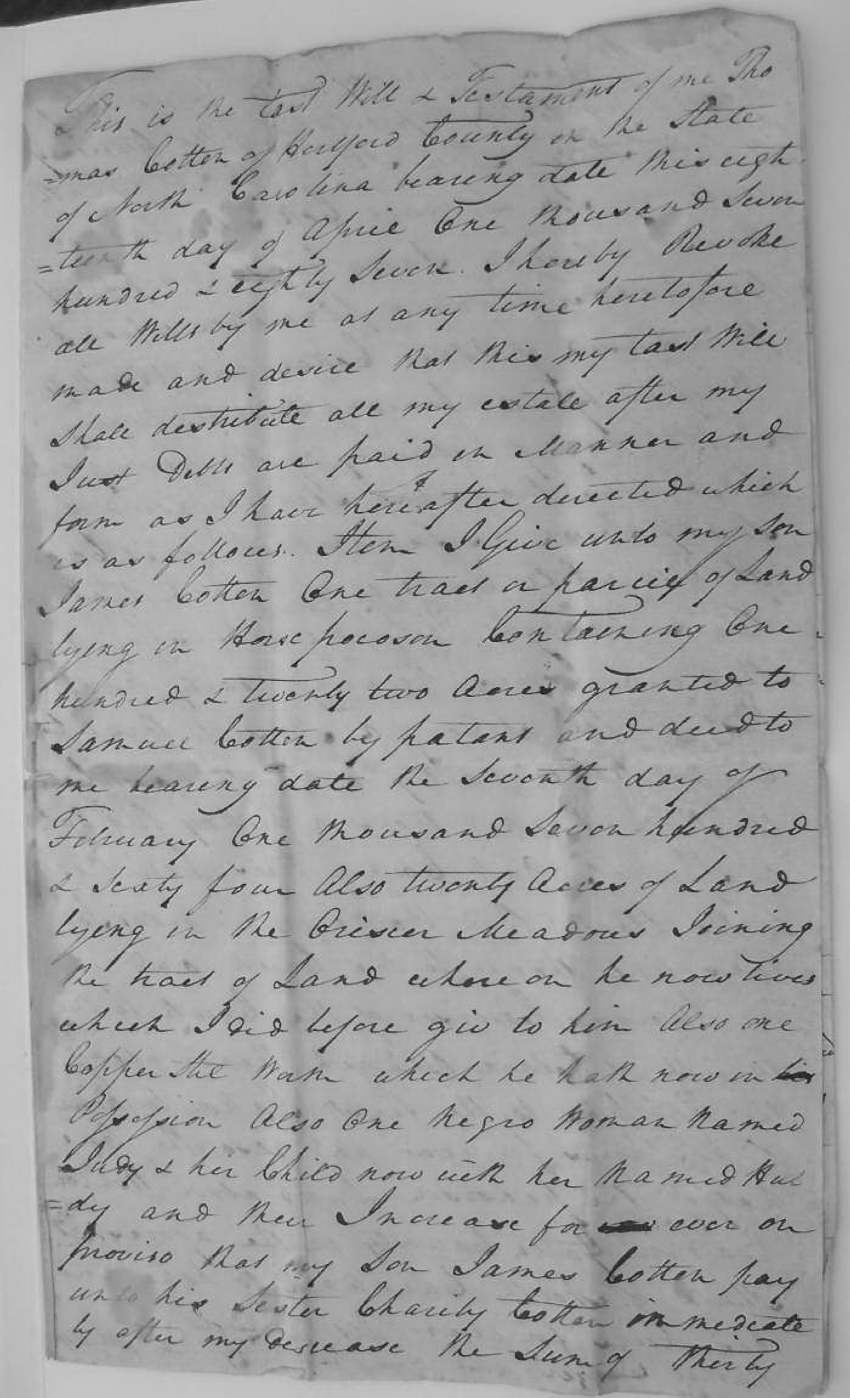 This is the last Will & Testament of me Tho
=mas Cotten of Hertford County in the State
of North Carolina bearing date this eigh
=teenth day of Aprie One thousand Seven
hundred & eighty Seven. I hereby Revoke
all Wills by me at any time heretofore
made and desire that this my last Will
Shall destribute all my estate after my
Just Debts are paid in Manner and
form as I have hereafter derected which
is as follows. Item I Give unto my Son
James Cotten One tract or parcel of Land
lying in Horse pocoson Containing One
hundred & twenty two Acres granted to
Samuel Cotten by patant and deed to
me bearing date the Seventh day of
February One thousand Seven hundred
& Sexty four Also twenty Acres of Land
lying in the Meadows Joining
the tract of Land whereon he now lives
which I did before giv to him Also one
Copper Still which he hath now in
Possession Also One Negro Woman Named
Judy & her Child now with her Named Hul
=dy and their Increase for ever on
proviso that my Son James Cotten pay
unto his Sister Charity Cotten immediate
ly after my decrease the Sum of Thirty